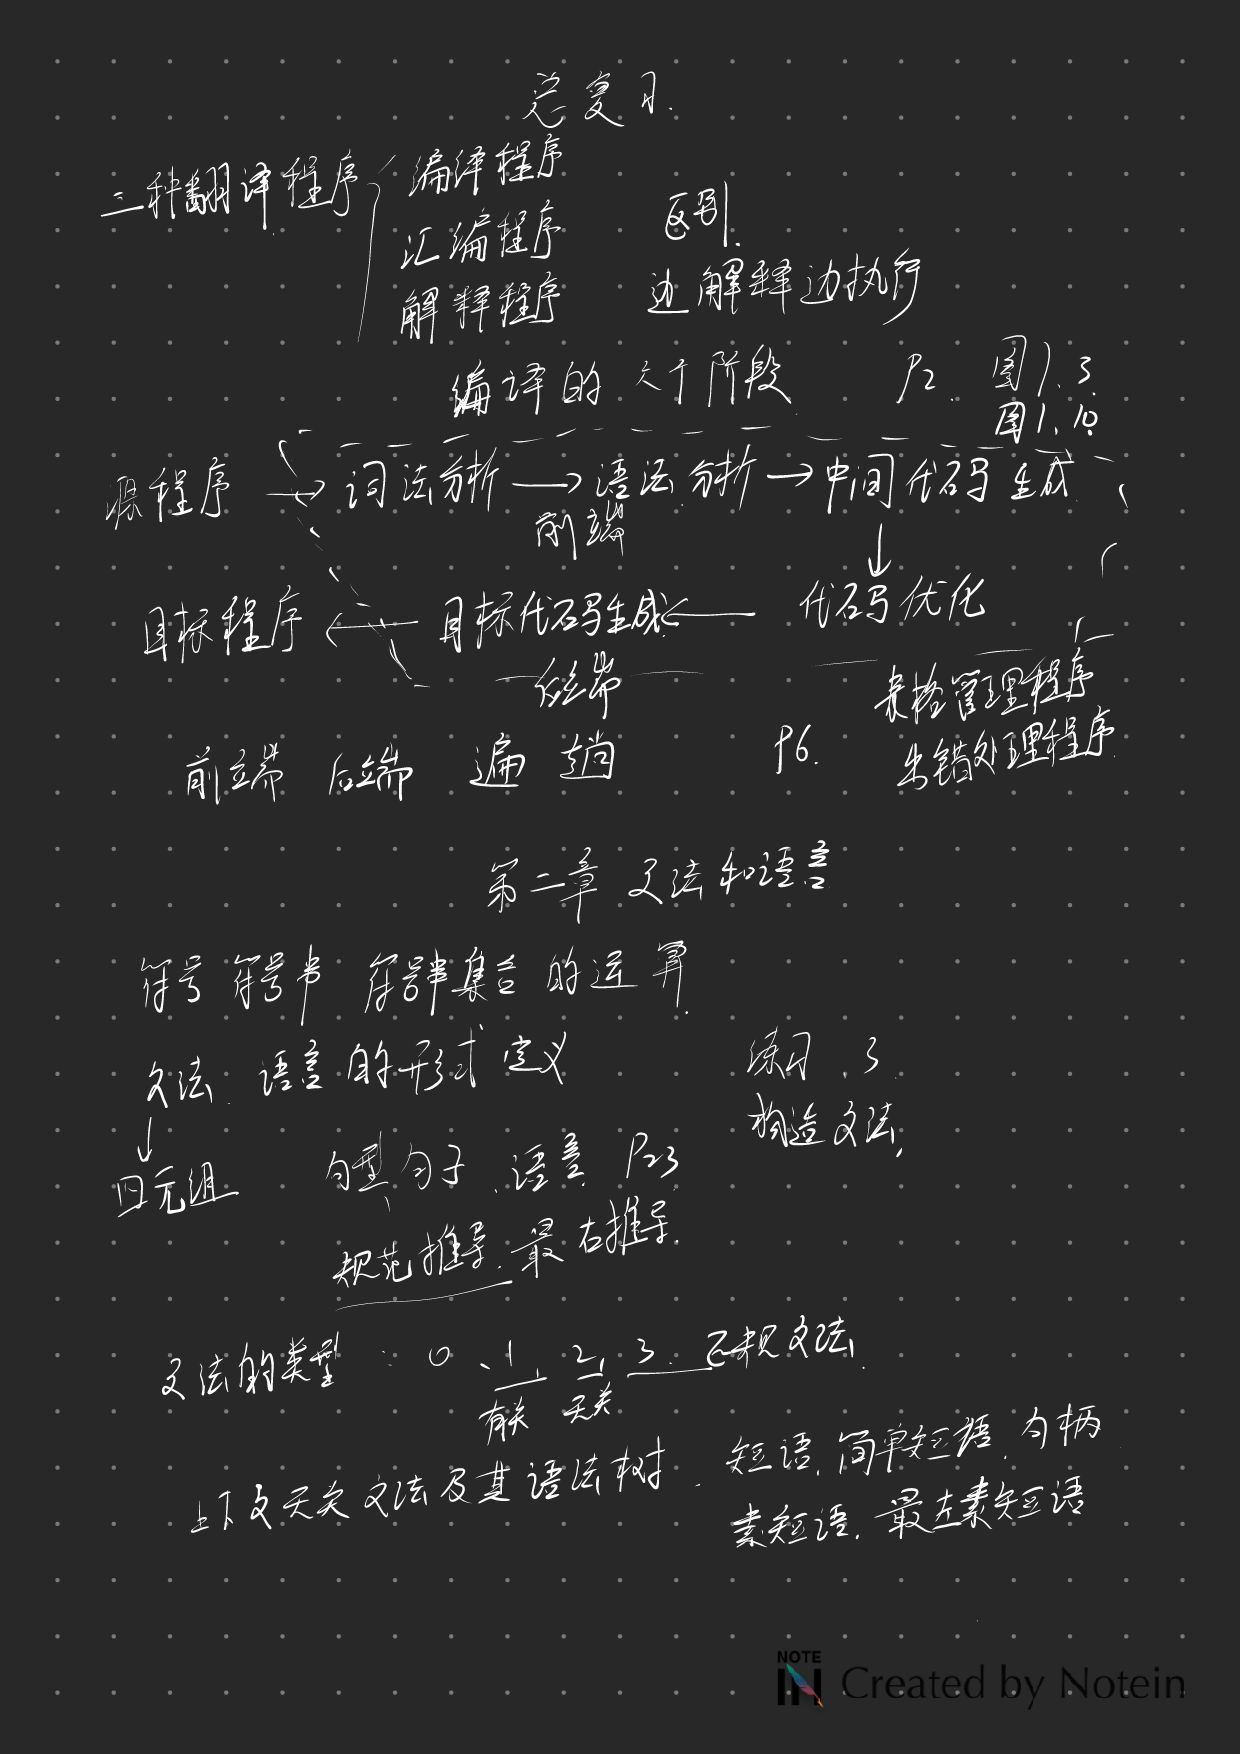 总复习.
三种翻译程序
编译程序
汇编程序 区别.
解释程序 边解释边执行
编译的六个阶段 P2. 图1.3.
图1.10.
源程序 → 词法分析 → 语法分析 → 中间代码生成
前端 ↓
目标程序 ← 目标代码生成 ← 代码优化
后端 表格管理程序
前端 后端 遍 趟 P6. 出错处理程序
第二章 文法和语言
符号 符号串 符号串集合的运算
文法. 语言的形式定义 练习.3.
↓ 构造文法.
四元组 句型、句子、语言 P23
规范推导. 最右推导.
文法的类型: 0、1、2、3. 正规文法.
有关 无关
上下文无关文法及其语法树. 短语. 简单短语. 句柄
素短语. 最左素短语
NOTE
IN Created by Notein